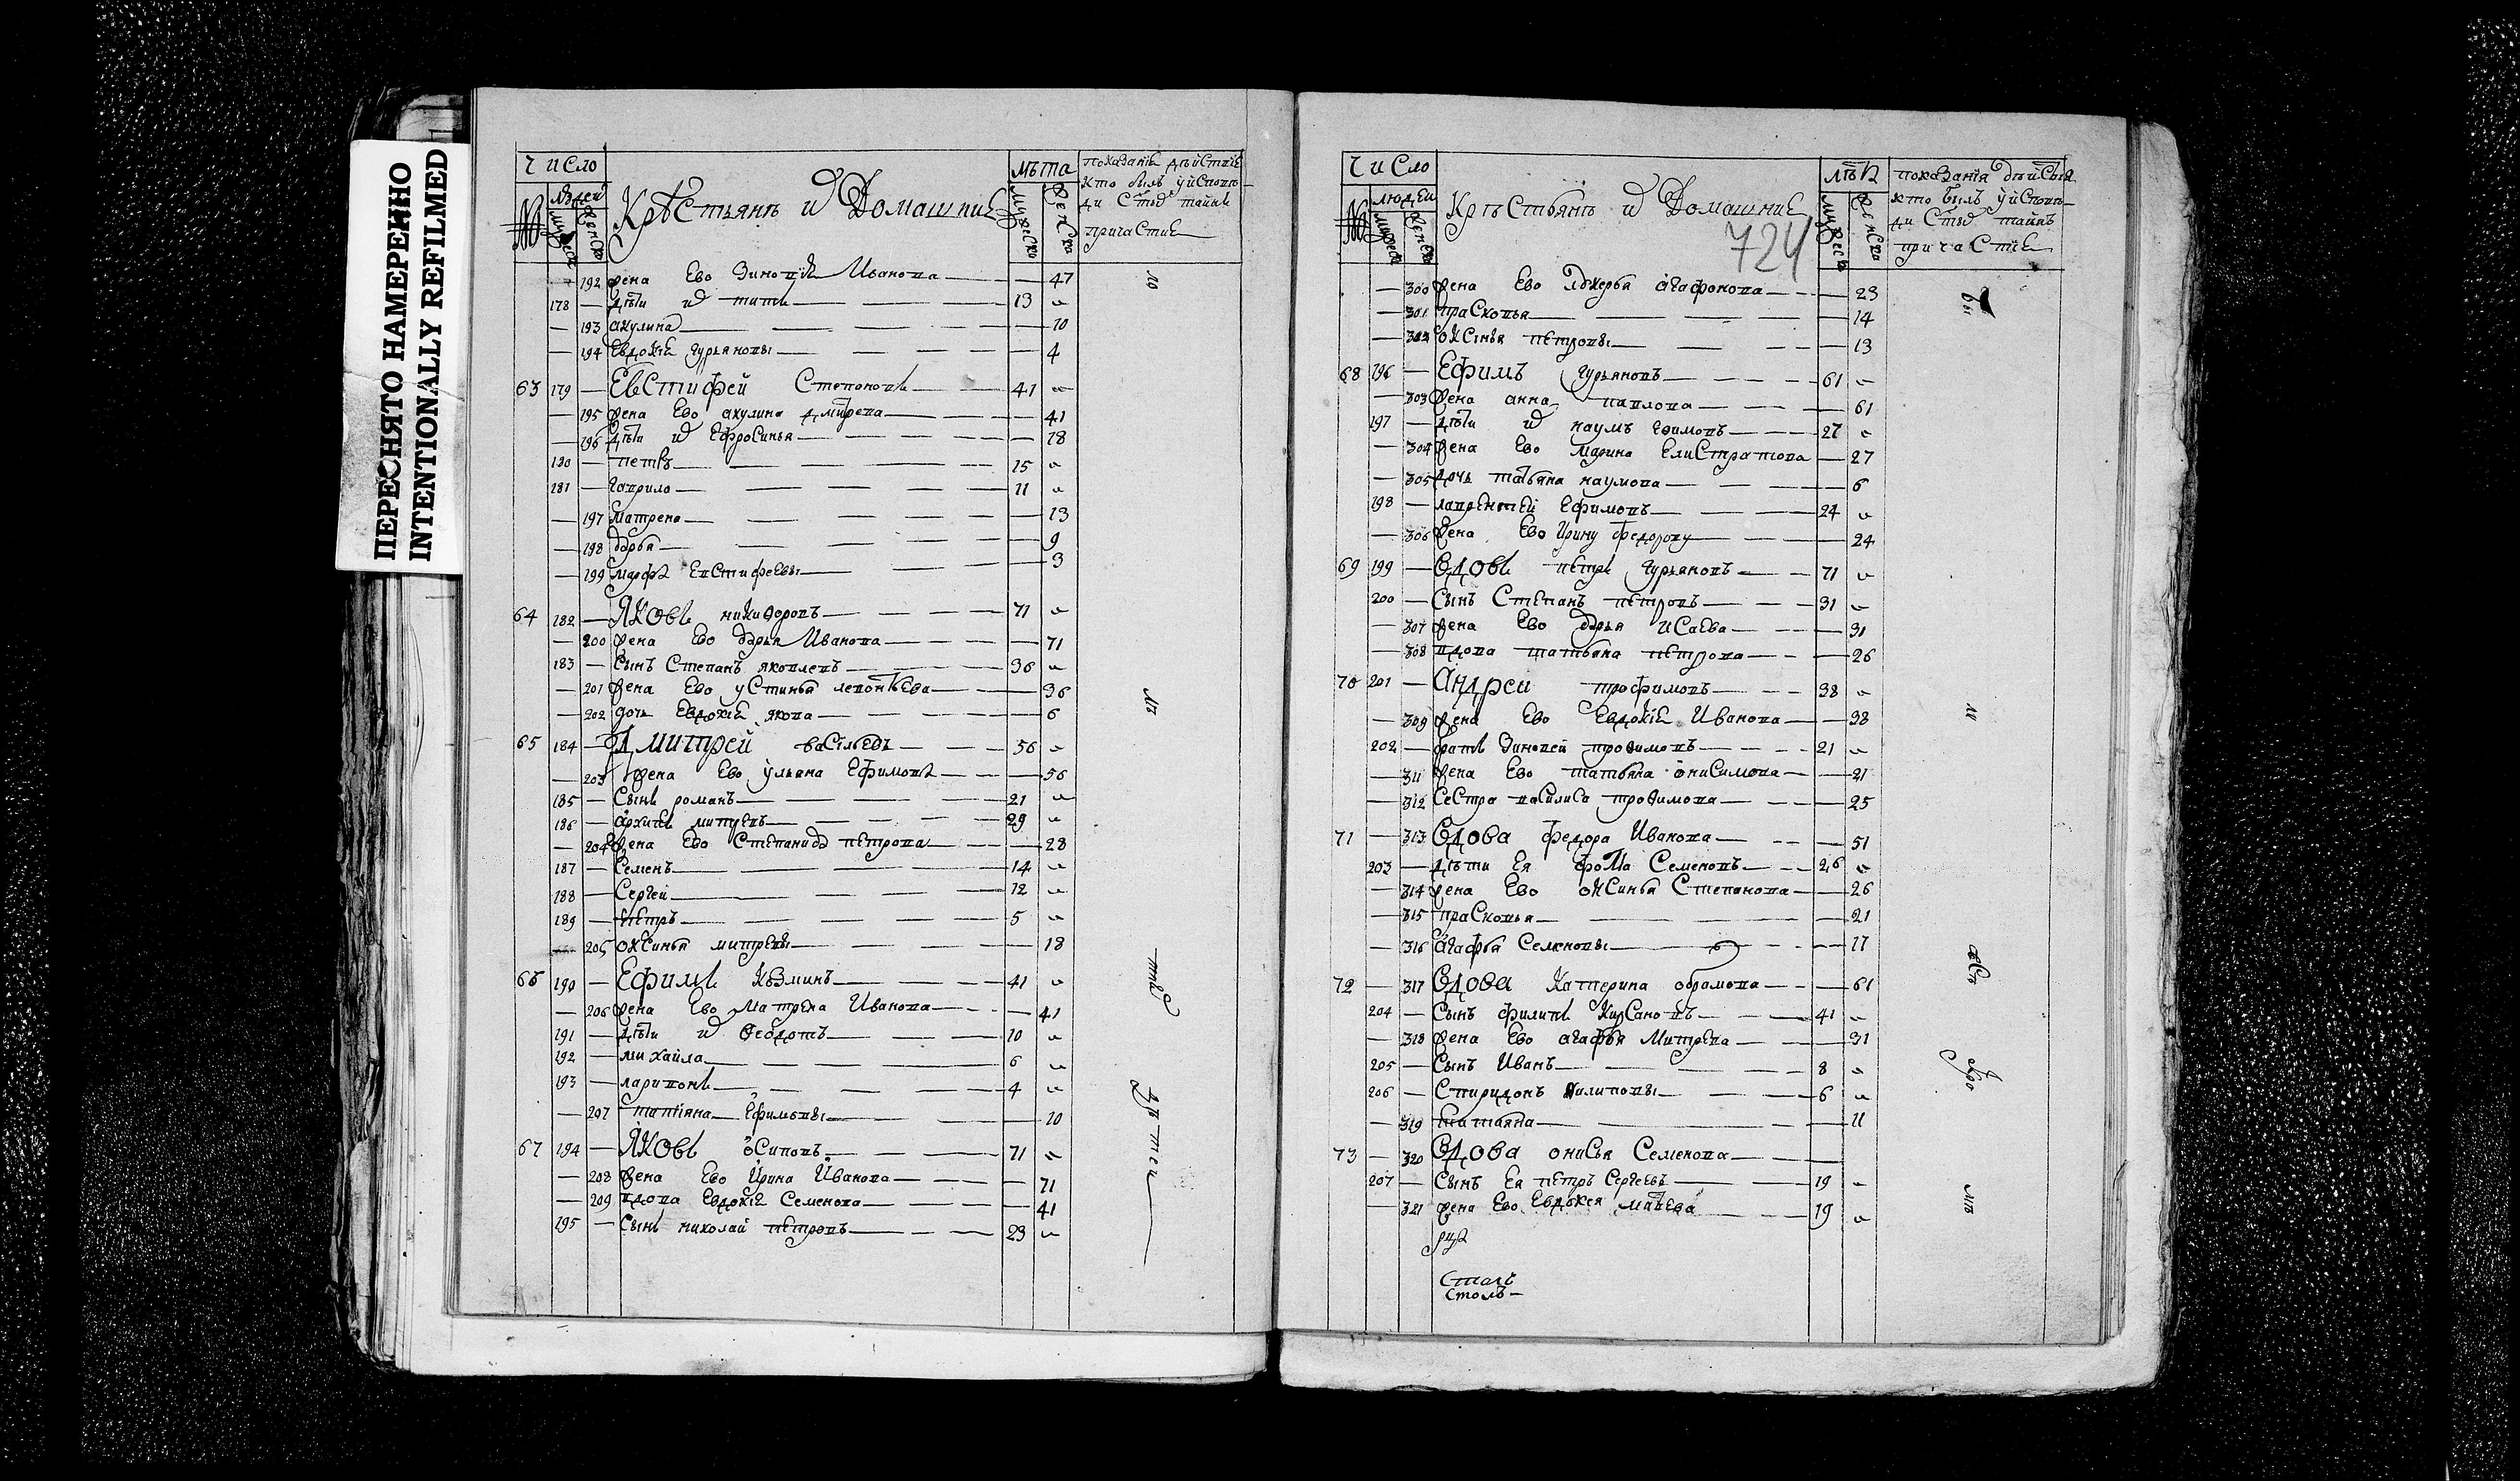 ПЕРЕСНЯТО НАМЕРЕННО
INTENTIONALLY REFILMED
Число
лѣта
№ людей
Крѣстьянъ и домашние
показание дѣйства
кто былъ у исповѣ
ди святой тайнъ
причастие
192 жена Ево Зиновия Иванова 47
178 дѣти их титъ 13
193 акулина 10
194 Евдокия гурьяновы 4
63 179 Евстифей Степановъ 41
195 жена Ево акулина дмитрева 41
196 дѣти их Ефросинья 18
180 петръ 15
181 гаврило 11
197 матрена 13
198 дарья 9
199 марфа Евстифеевы 3
64 182 Яковъ никифоровъ 71
200 жена Ево дарья Иванова 71
183 сынъ Степанъ яковлевъ 36
201 жена Ево устинья леонтьева 36
202 дочь Евдокия якова 6
65 184 Дмитрей васильевъ 56
203 жена Ево ульяна Ефимова 56
185 Сынъ романъ 21
186 архипъ митревъ 29
204 жена Ево Степанида петрова 28
187 Семенъ 14
188 Сергей 12
189 петръ 5
205 оксинья митревы 18
66 190 Ефимъ Кузминъ 41
206 жена Ево Матрена Иванова 41
191 дѣти их Федотъ 10
192 михайла 6
193 ларионъ 4
207 татияна Ефимовы 10
67 194 Яковъ осиповъ 71
208 жена Ево Ирина Иванова 71
209 вдова Евдокия Семенова 41
195 Сынъ николай петровъ 23
Число
лѣта
№ людей
Крѣстьянъ и домашние
724
показания дѣйсвия
кто былъ у исповѣ
ди святой тайнъ
причастие
300 жена Ево агафонова 23
301 прасковья 14
302 оксинья петровы 13
68 196 Ефимъ гурьяновъ 61
303 жена анна павлова 61
197 дѣти их наумъ Ефимовъ 27
304 жена Ево марина Елистратова 27
305 дочь татьяна наумова 6
198 лаврентей Ефимовъ 24
306 жена Ево Ирину федорову 24
69 199 вдовъ петръ гурьяновъ 71
200 Сынъ Степанъ петровъ 31
307 жена Ево дарья исаева 31
308 вдова татьяна петрова 26
70 201 Андреи трофимовъ 38
309 жена Ево Евдокия Иванова 38
202 братъ Зиновей трофимовъ 21
311 жена Ево татьяна онисимова 21
312 Сестра василиса трофимова 25
71 313 вдова федора Иванова 51
203 дѣти Ея фома Семеновъ 26
314 жена Ево оксинья Степанова 26
315 прасковья 21
316 агафья Семеновы 17
72 317 вдова Катерина обрамова 61
204 Сынъ филипъ Кирсановъ 41
318 жена Ево агафья Митрева 31
205 Сынъ Иванъ 8
206 Спиридонъ Филиповы 6
319 татьяна 11
73 320 вдова онисья Семенова
207 Сынъ Ея петръ Сергеевъ 19
321 жена Ево Евдокея матвева 19
Столъ
Столъ